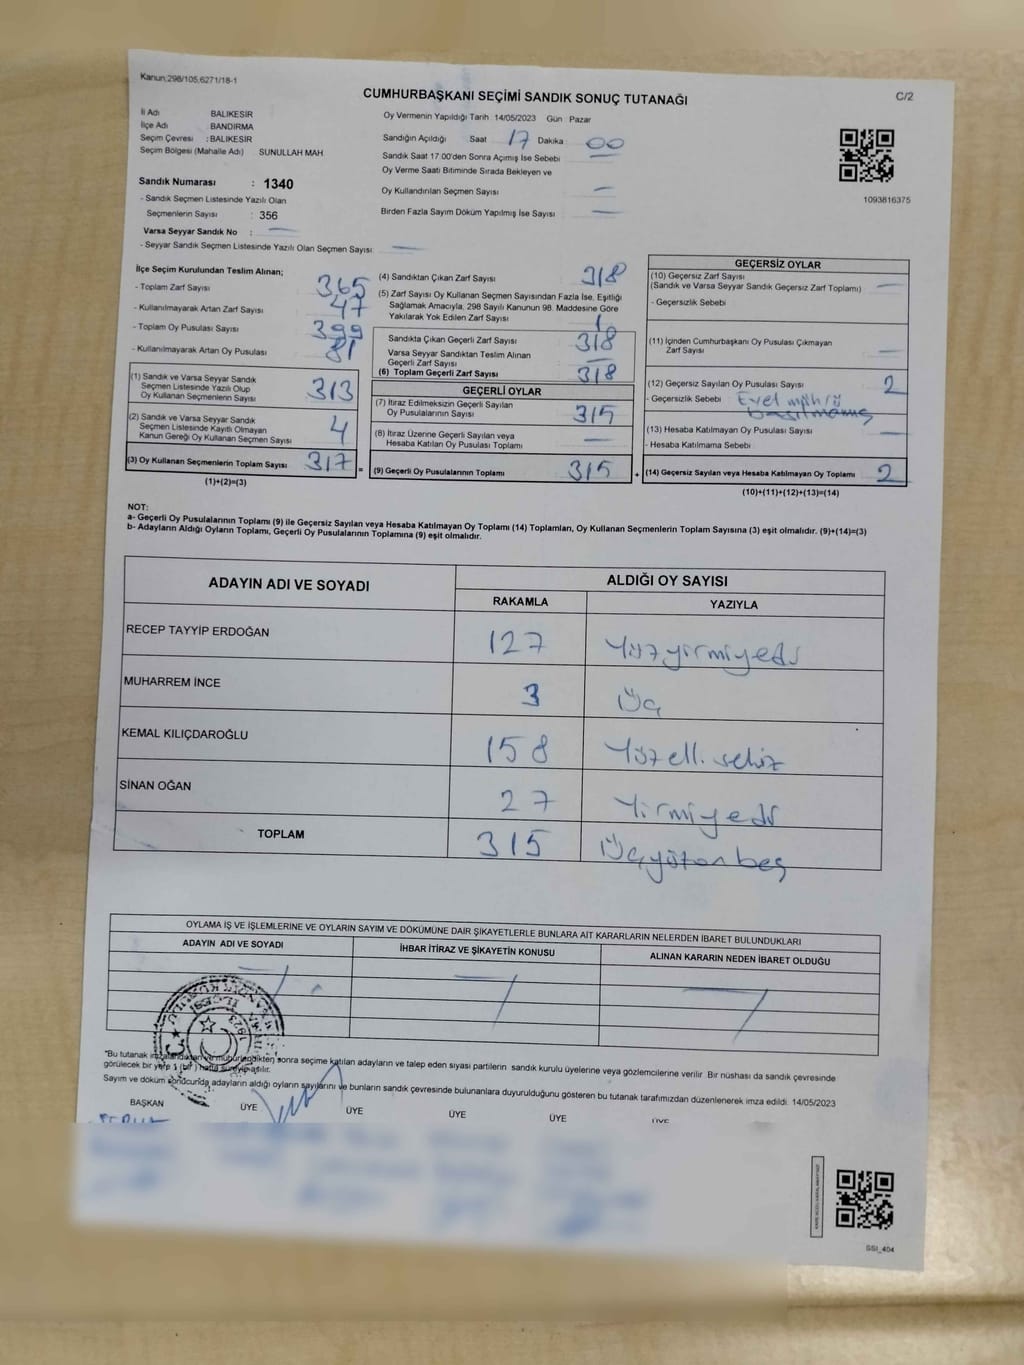 Kanun:298/105,6271/18-1
CUMHURBAŞKANI SEÇİMİ SANDIK SONUÇ TUTANAĞI
C/2
İl Adı BALIKESİR
İlçe Adı BANDIRMA
Seçim Çevresi : BALIKESİR
Seçim Bölgesi (Mahalle Adı) SUNULLAH MAH
Sandık Numarası : 1340
- Sandık Seçmen Listesinde Yazılı Olan
Seçmenlerin Sayısı : 356
Varsa Seyyar Sandık No : —
- Seyyar Sandık Seçmen Listesinde Yazılı Olan Seçmen Sayısı: —
Oy Vermenin Yapıldığı Tarih 14/05/2023 Gün Pazar
Sandığın Açıldığı Saat 17 Dakika : 00
Sandık Saat 17:00'den Sonra Açımış İse Sebebi —
Oy Verme Saati Bitiminde Sırada Bekleyen ve
Oy Kullandırılan Seçmen Sayısı —
Birden Fazla Sayım Döküm Yapılmış İse Sayısı —
1093816375
İlçe Seçim Kurulundan Teslim Alınan;
- Toplam Zarf Sayısı 365
- Kullanılmayarak Artan Zarf Sayısı 47
- Toplam Oy Pusulası Sayısı 399
- Kullanılmayarak Artan Oy Pusulası 81
(1) Sandık ve Varsa Seyyar Sandık
Seçmen Listesinde Yazılı Olup
Oy Kullanan Seçmenlerin Sayısı 313
(2) Sandık ve Varsa Seyyar Sandık
Seçmen Listesinde Kayıtlı Olmayan
Kanun Gereği Oy Kullanan Seçmen Sayısı 4
(3) Oy Kullanan Seçmenlerin Toplam Sayısı 317 =
(1)+(2)=(3)
(4) Sandıktan Çıkan Zarf Sayısı 318
(5) Zarf Sayısı Oy Kullanan Seçmen Sayısından Fazla İse, Eşitliği
Sağlamak Amacıyla, 298 Sayılı Kanunun 98. Maddesine Göre
Yakılarak Yok Edilen Zarf Sayısı 1
Sandıkta Çıkan Geçerli Zarf Sayısı 318
Varsa Seyyar Sandıktan Teslim Alınan
Geçerli Zarf Sayısı —
(6) Toplam Geçerli Zarf Sayısı 318
GEÇERLİ OYLAR
(7) İtiraz Edilmeksizin Geçerli Sayılan
Oy Pusulalarının Sayısı 315
(8) İtiraz Üzerine Geçerli Sayılan veya
Hesaba Katılan Oy Pusulası Toplamı —
(9) Geçerli Oy Pusulalarının Toplamı 315 +
GEÇERSİZ OYLAR
(10) Geçersiz Zarf Sayısı
(Sandık ve Varsa Seyyar Sandık Geçersiz Zarf Toplamı) —
- Geçersizlik Sebebi
(11) İçinden Cumhurbaşkanı Oy Pusulası Çıkmayan
Zarf Sayısı —
(12) Geçersiz Sayılan Oy Pusulası Sayısı 2
- Geçersizlik Sebebi Evet mührü
basılmamış
(13) Hesaba Katılmayan Oy Pusulası Sayısı —
- Hesaba Katılmama Sebebi
(14) Geçersiz Sayılan veya Hesaba Katılmayan Oy Toplamı 2
(10)+(11)+(12)+(13)=(14)
NOT:
a- Geçerli Oy Pusulalarının Toplamı (9) ile Geçersiz Sayılan veya Hesaba Katılmayan Oy Toplamı (14) Toplamları, Oy Kullanan Seçmenlerin Toplam Sayısına (3) eşit olmalıdır. (9)+(14)=(3)
b- Adayların Aldığı Oyların Toplamı, Geçerli Oy Pusulalarının Toplamına (9) eşit olmalıdır.
ADAYIN ADI VE SOYADI ALDIĞI OY SAYISI
RAKAMLA YAZIYLA
RECEP TAYYİP ERDOĞAN 127 Yüzyirmiyedi
MUHARREM İNCE 3 Üç
KEMAL KILIÇDAROĞLU 158 Yüzelli sekiz
SİNAN OĞAN 27 Yirmiyedi
TOPLAM 315 Üçyüzon beş
OYLAMA İŞ VE İŞLEMLERİNE VE OYLARIN SAYIM VE DÖKÜMÜNE DAİR ŞİKAYETLERLE BUNLARA AİT KARARLARIN NELERDEN İBARET BULUNDUKLARI
ADAYIN ADI VE SOYADI İHBAR İTİRAZ VE ŞİKAYETİN KONUSU ALINAN KARARIN NEDEN İBARET OLDUĞU
*Bu tutanak imzalandıktan ve mühürlendikten sonra seçime katılan adayların ve talep eden siyasi partilerin sandık kurulu üyelerine veya gözlemcilerine verilir. Bir nüshası da sandık çevresinde
görülecek bir yere 1 (bir) hafta süreyle asılır.
Sayım ve döküm sonucunda adayların aldığı oyların sayılarını ve bunların sandık çevresinde bulunanlara duyurulduğunu gösteren bu tutanak tarafımızdan düzenlenerek imza edildi. 14/05/2023
BAŞKAN ÜYE ÜYE ÜYE ÜYE ÜYE
SSI_404